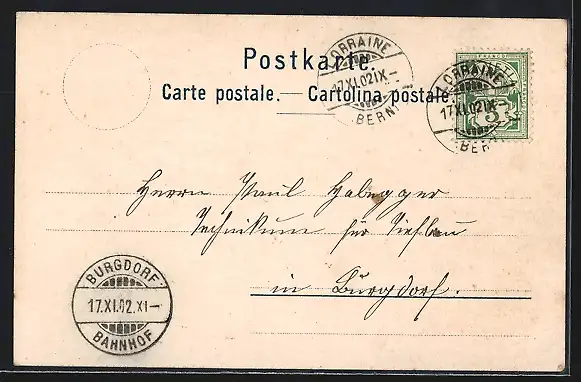 Postkarte.
Carte postale. — Cartolina postale.
LORRAINE
17.XI.02 IX–
(BERN)
LORRAINE
17.XI.02 IX–
(BERN)
5
Herrn Paul Habegger
Technikum für Tiefbau
in Burgdorf.
BURGDORF
17.XI.02.XI–
BAHNHOF